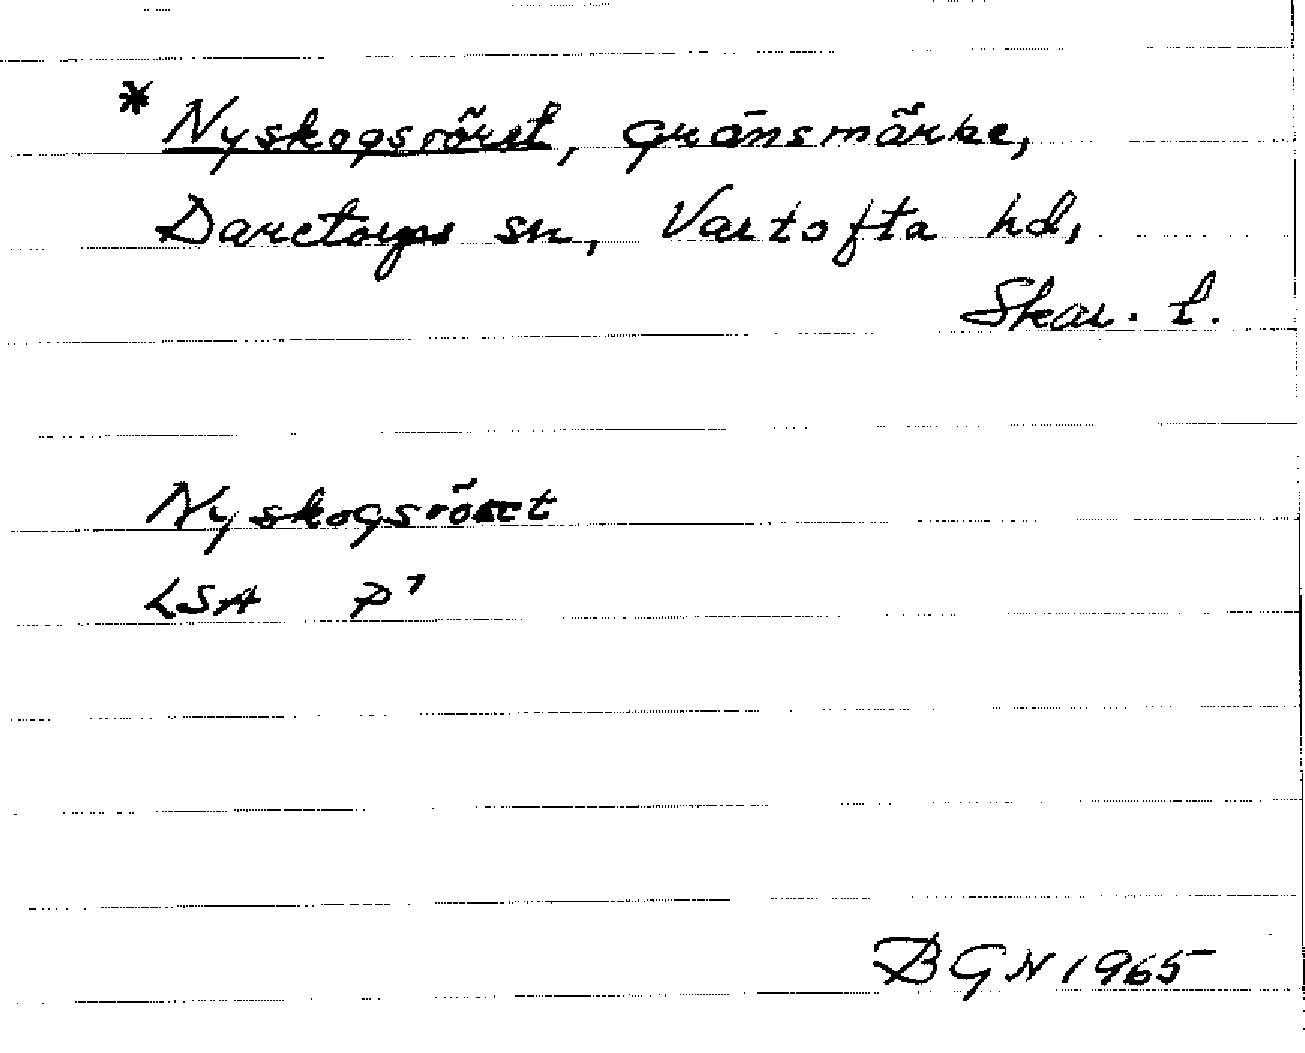 * Nyskogsröret, gränsmärke,
Daretorps sn, Vartofta hd,
Skar. l.
Nyskogsröset
LSA P7
BGN 1965